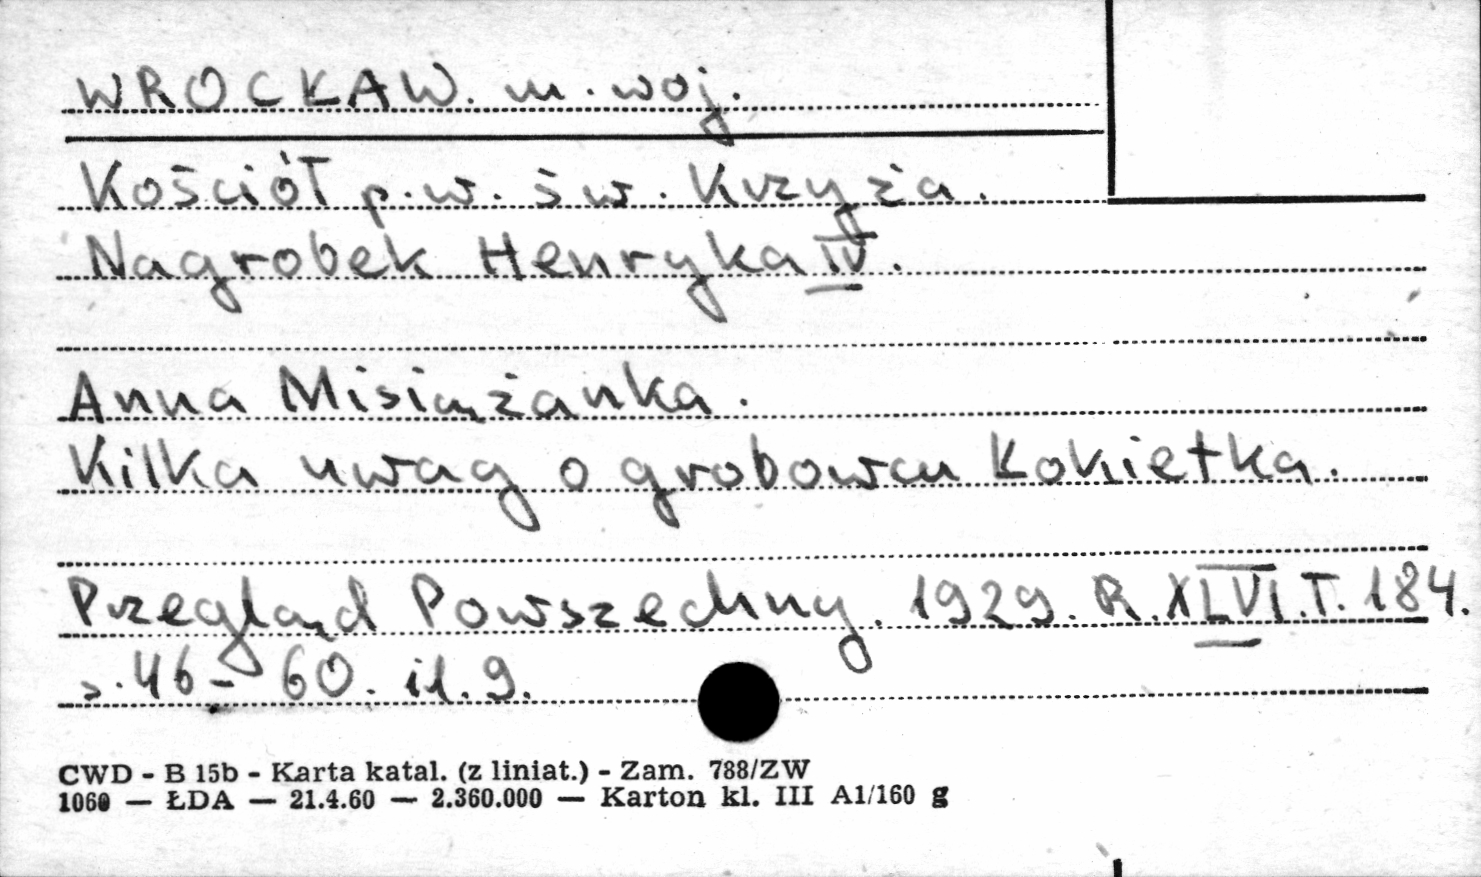 WROCŁAW. m. woj.
Kościół p.w. św. Krzyża.
Nagrobek Henryka IV.
Anna Misiążanka.
Kilka uwag o grobowcu Łokietka.
Przegląd Powszechny. 1929. R. XLVI. T. 184.
s. 46 - 60. il. 9.
CWD - B 15b - Karta katal. (z liniat.) - Zam. 788/ZW
1060 — ŁDA — 21.4.60 — 2.360.000 — Karton kl. III A1/160 g